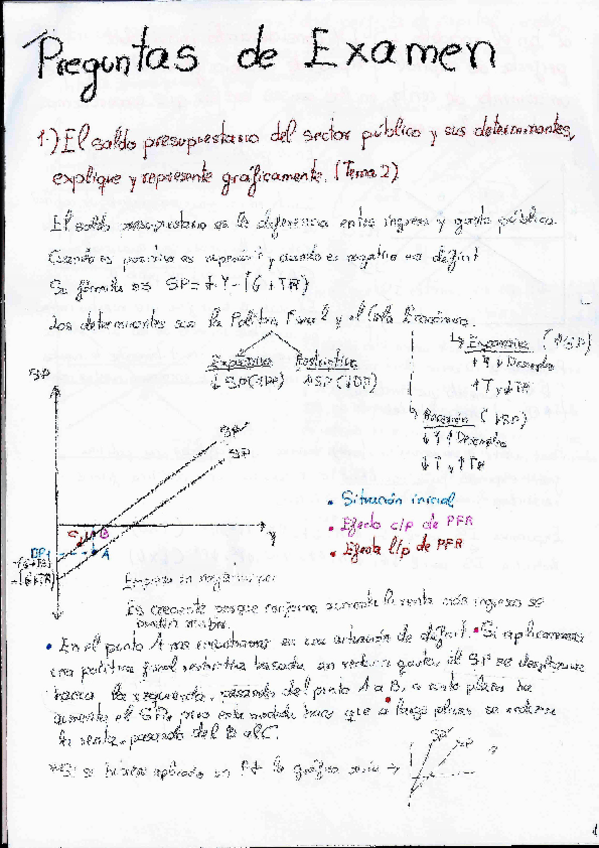 Preguntas de Examen
1.) El saldo presupuestario del sector público y sus determinantes,
explique y represente gráficamente. (Tema 2)
El saldo presupuestario es la diferencia entre ingreso y gasto público.
Cuando es positivo es superávit y cuando es negativo es déficit
Su fórmula es SP = t·Y - (G + TR)
Los determinantes son la Política Fiscal y el Ciclo Económico.
Expansiva
Restrictiva
↓SP(↑DP)
↑SP(↓DP)
Expansión (↑SP)
↑Y ↓Desempleo
↑T y ↓TR
Recesión (↓SP)
↓Y ↑Desempleo
↓T y ↑TR
SP
SP'
SP
C
B
A
Y
DP1
-(G+TR)
-(G+TR)
• Situación inicial
• Efecto c/p de PFR
• Efecto l/p de PFR
Empieza en negativo
Es creciente porque conforme aumenta la renta más ingresos se
• En el punto A nos encontramos en una situación de déficit. • Si aplicamos
una política fiscal restrictiva basada en reducir gastos, el SP se desplazará
hacia la izquierda, pasando del punto A a B, a corto plazo ha
aumentado el SP, pero esta medida hace que a largo plazo se reduzca
la renta, pasando del B al C.
si se hubiera aplicado un la gráfica sería →
SP'
SP
1